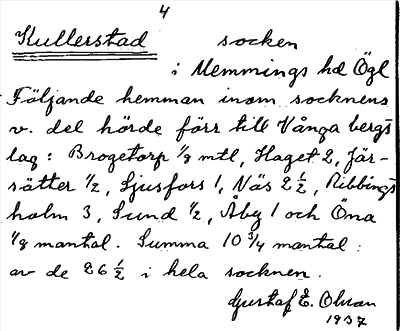 4
Kullerstad socken
i Memmings hd Ögl
Följande hemman inom socknens
v. del hörde förr till Vånga bergs
lag: Brogetorp 1/8 mtl, Haget 2, Jär-
sätter 1/2, Ljusfors 1, Näs 2 1/2, Ribbings
holm 3, Sund 1/2, Åby 1 och Öna
1/8 mantal. Summa 10 3/4 mantal:
av de 26 1/2 i hela socknen.
Gustaf E. Olsson
1937